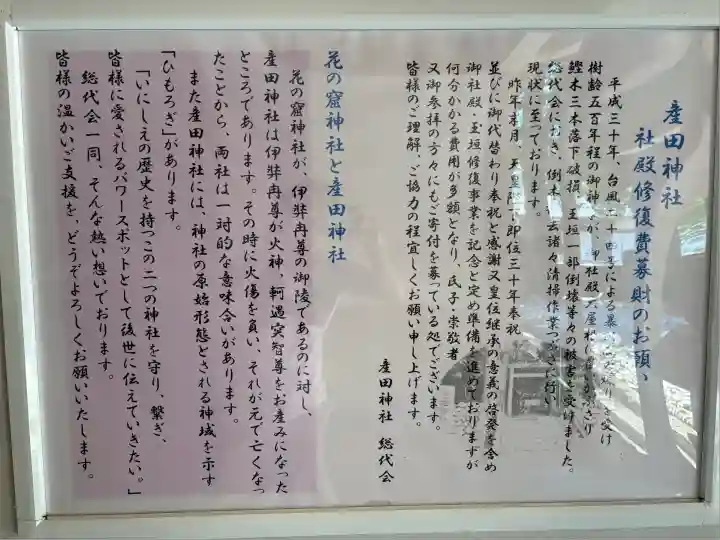 産田神社
社殿修復費募財のお願い
平成三十年、台風二十四号による暴
受け
樹齢五百年程の御神
が、
社殿
屋根に
鰹木三本落下破損、玉垣一部倒壊等々の被害を受けました。
総代会におき、倒木
去諸々清掃作業
行い
現状に至っております。
昨年来月、天皇陛下即位三十年奉祝
並びに御代替わり奉祝と感謝又皇位継承の意義の啓発を含め
御社殿・玉垣修復事業を記念と定め準備を進めておりますが
何分かかる費用が多額となり、氏子・崇敬者
又御参拝の方々にもご寄付を募っている処でございます。
皆様のご理解、ご協力の程宜しくお願い申し上げます。
産田神社 総代会
花の窟神社と産田神社
花の窟神社が、伊弉冉尊の御陵であるのに対し、
産田神社は伊弉冉尊が火神、軻遇突智尊をお産みになった
ところであります。その時に火傷を負い、それが元で亡くなっ
たことから、両社は一対的な意味合いがあります。
また産田神社には、神社の原始形態とされる神域を示す
「ひもろぎ」があります。
「いにしえの歴史を持つこの二つの神社を守り、繋ぎ、
皆様に愛されるパワースポットとして後世に伝えていきたい。」
総代会一同、そんな熱い想いでおります。
皆様の温かいご支援を、どうぞよろしくお願いいたします。